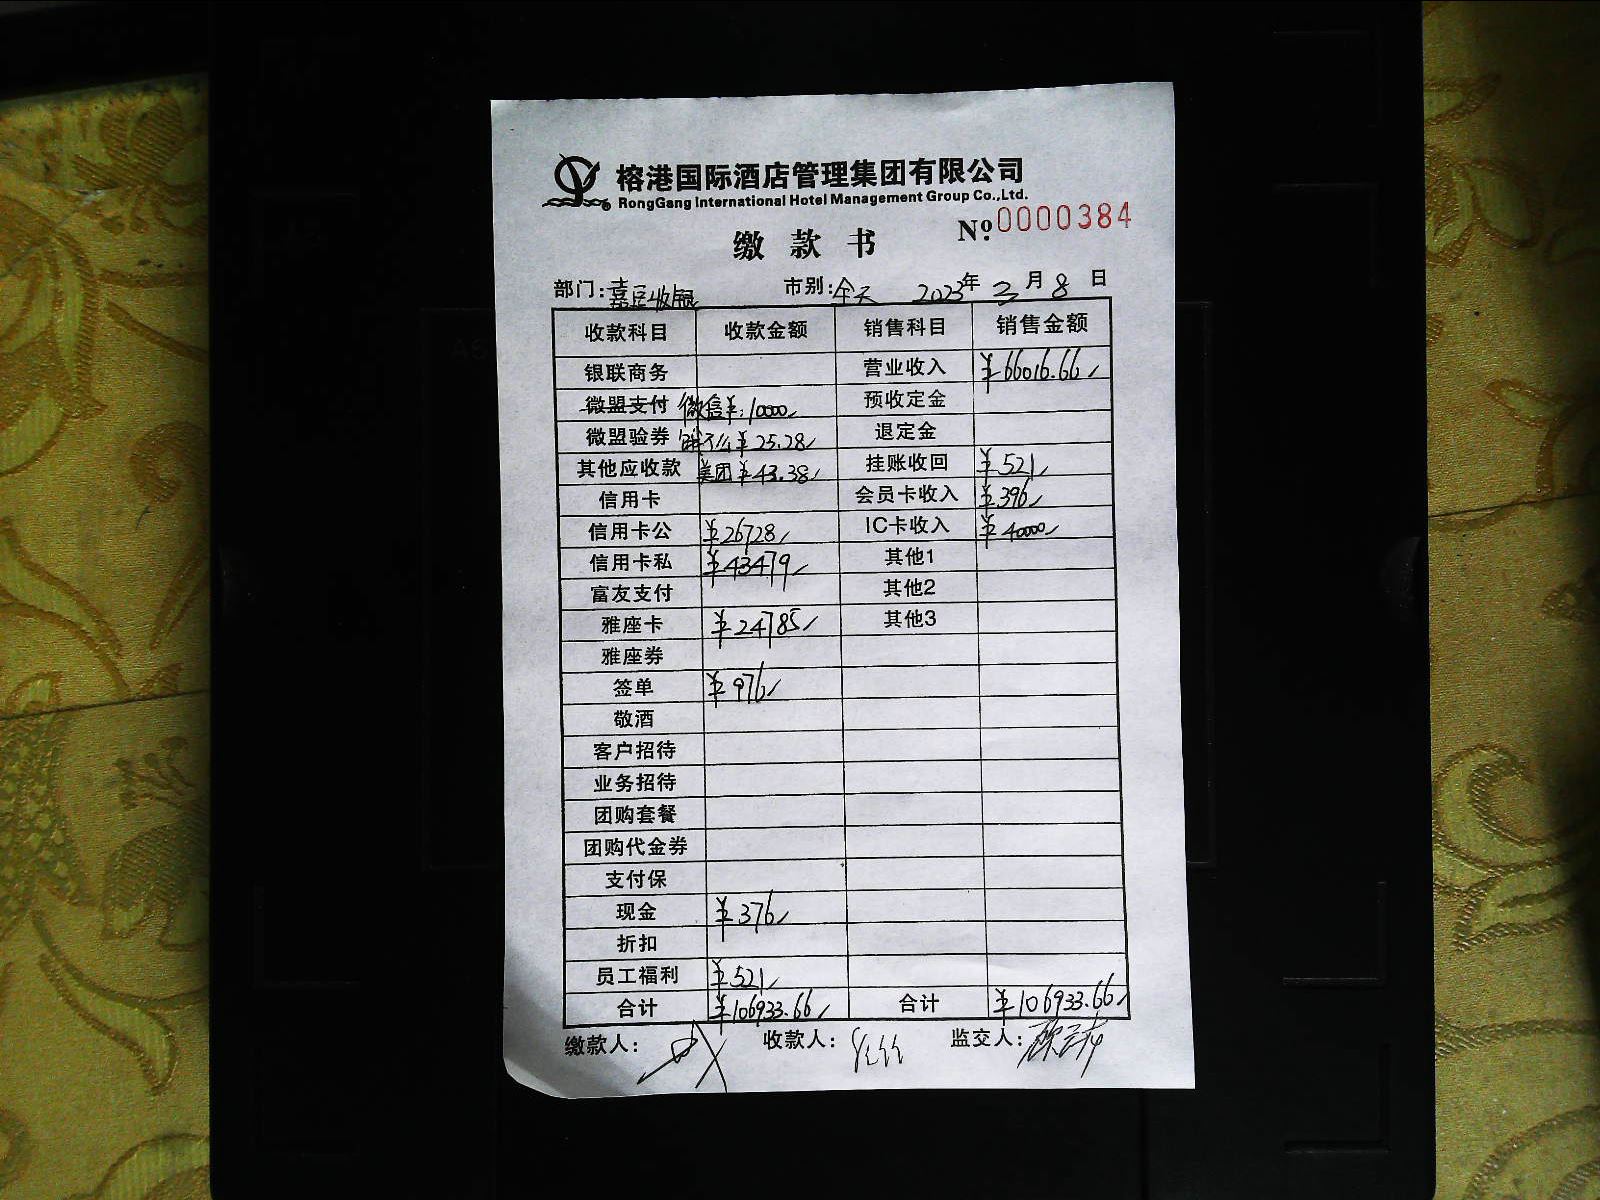 榕港国际酒店管理集团有限公司
RongGang International Hotel Management Group Co.,Ltd.
No. 0000384
缴款书
部门: 收银 市别:全天 2023年三月8日
收款科目 收款金额 销售科目 销售金额
银联商务 营业收入 ¥66016.66
微盟支付 微信¥:10000 预收定金
微盟验券 饿了么¥25.28 退定金
其他应收款 美团¥43.38 挂账收回 ¥521
信用卡 会员卡收入 ¥396
信用卡公 ¥26728 IC卡收入 ¥40000
信用卡私 ¥43479 其他1
富友支付 其他2
雅座卡 ¥24785 其他3
雅座券
签单 ¥976
敬酒
客户招待
业务招待
团购套餐
团购代金券
支付保
现金 ¥376
折扣
员工福利 ¥521
合计 ¥106933.66 合计 ¥106933.66
缴款人: 收款人: 监交人: